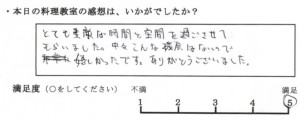 ・本日の料理教室の感想は、いかがでしたか?
とても素敵な時間と空間を過ごさせて
もらいました。中々こんな機会はないので
嬉しかったです。ありがとうございました。
満足度(○をしてください) 不満 満足
1 2 3 4 5